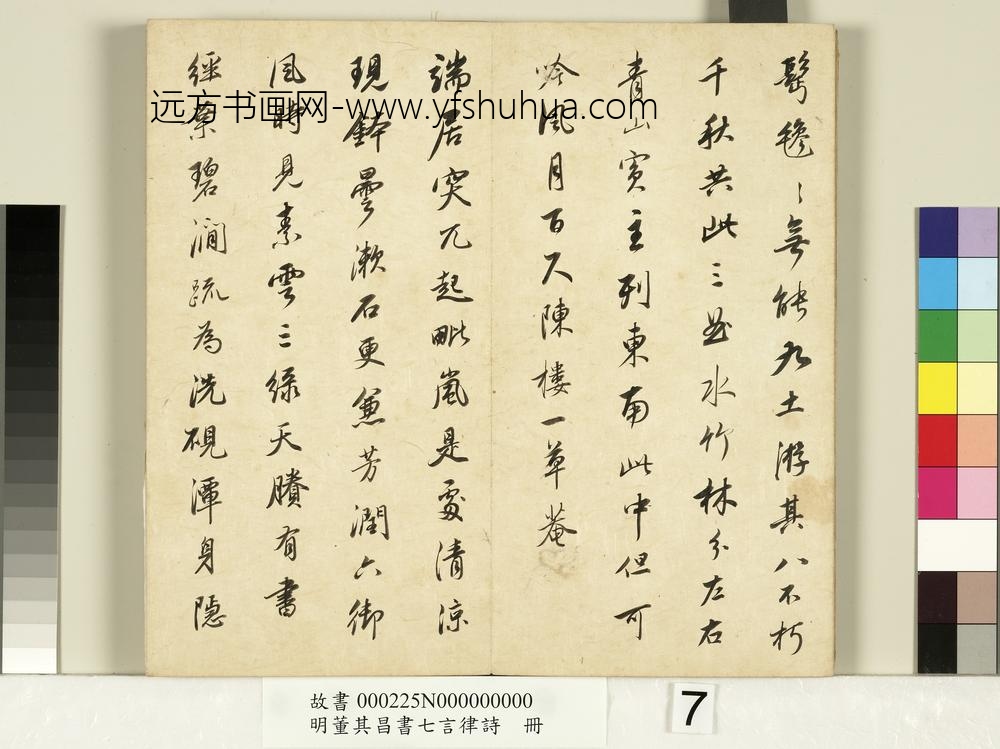 鬢毿〻無能九土游其八不朽
千秋共此三函水竹林分左右
青山賓主列東南此中但可
吟風月百尺陳楼一草菴
端居突兀起毗嵐是處清涼
現鉢曇漱石更兼芳潤六御
風時見素雲三緑天賸有書
經案碧澗疏為洗硯潭身隱
远方书画网-www.yfshuhua.com
故書 000225N000000000
明董其昌書七言律詩 冊
7